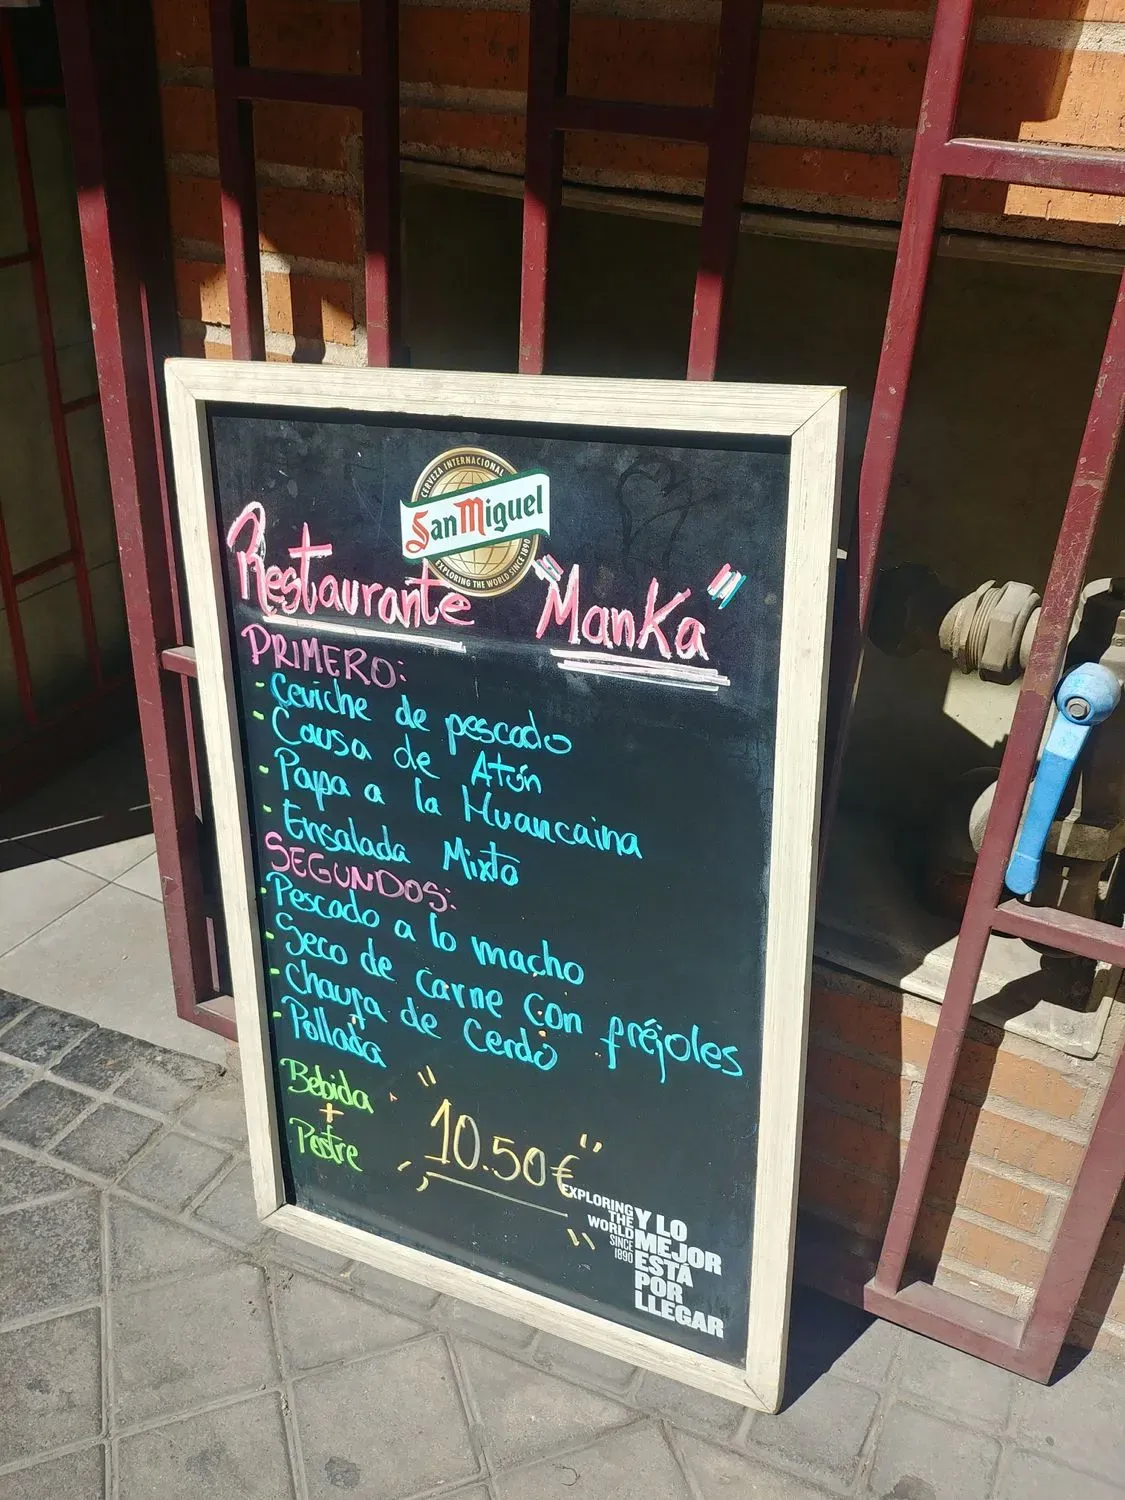 CERVEZA INTERNACIONAL
San Miguel
EXPLORING THE WORLD SINCE 1890
Restaurante "Manka"
PRIMERO:
- Ceviche de pescado
- Causa de Atún
- Papa a la Huancaina
- Ensalada Mixta
SEGUNDOS:
- Pescado a lo macho
- Seco de carne con fréjoles
- Chaufa de Cerdo
- Pollada
Bebida
+
Postre
10.50€
EXPLORING
THE
WORLD
SINCE
1890
Y LO
MEJOR
ESTÁ
POR
LLEGAR